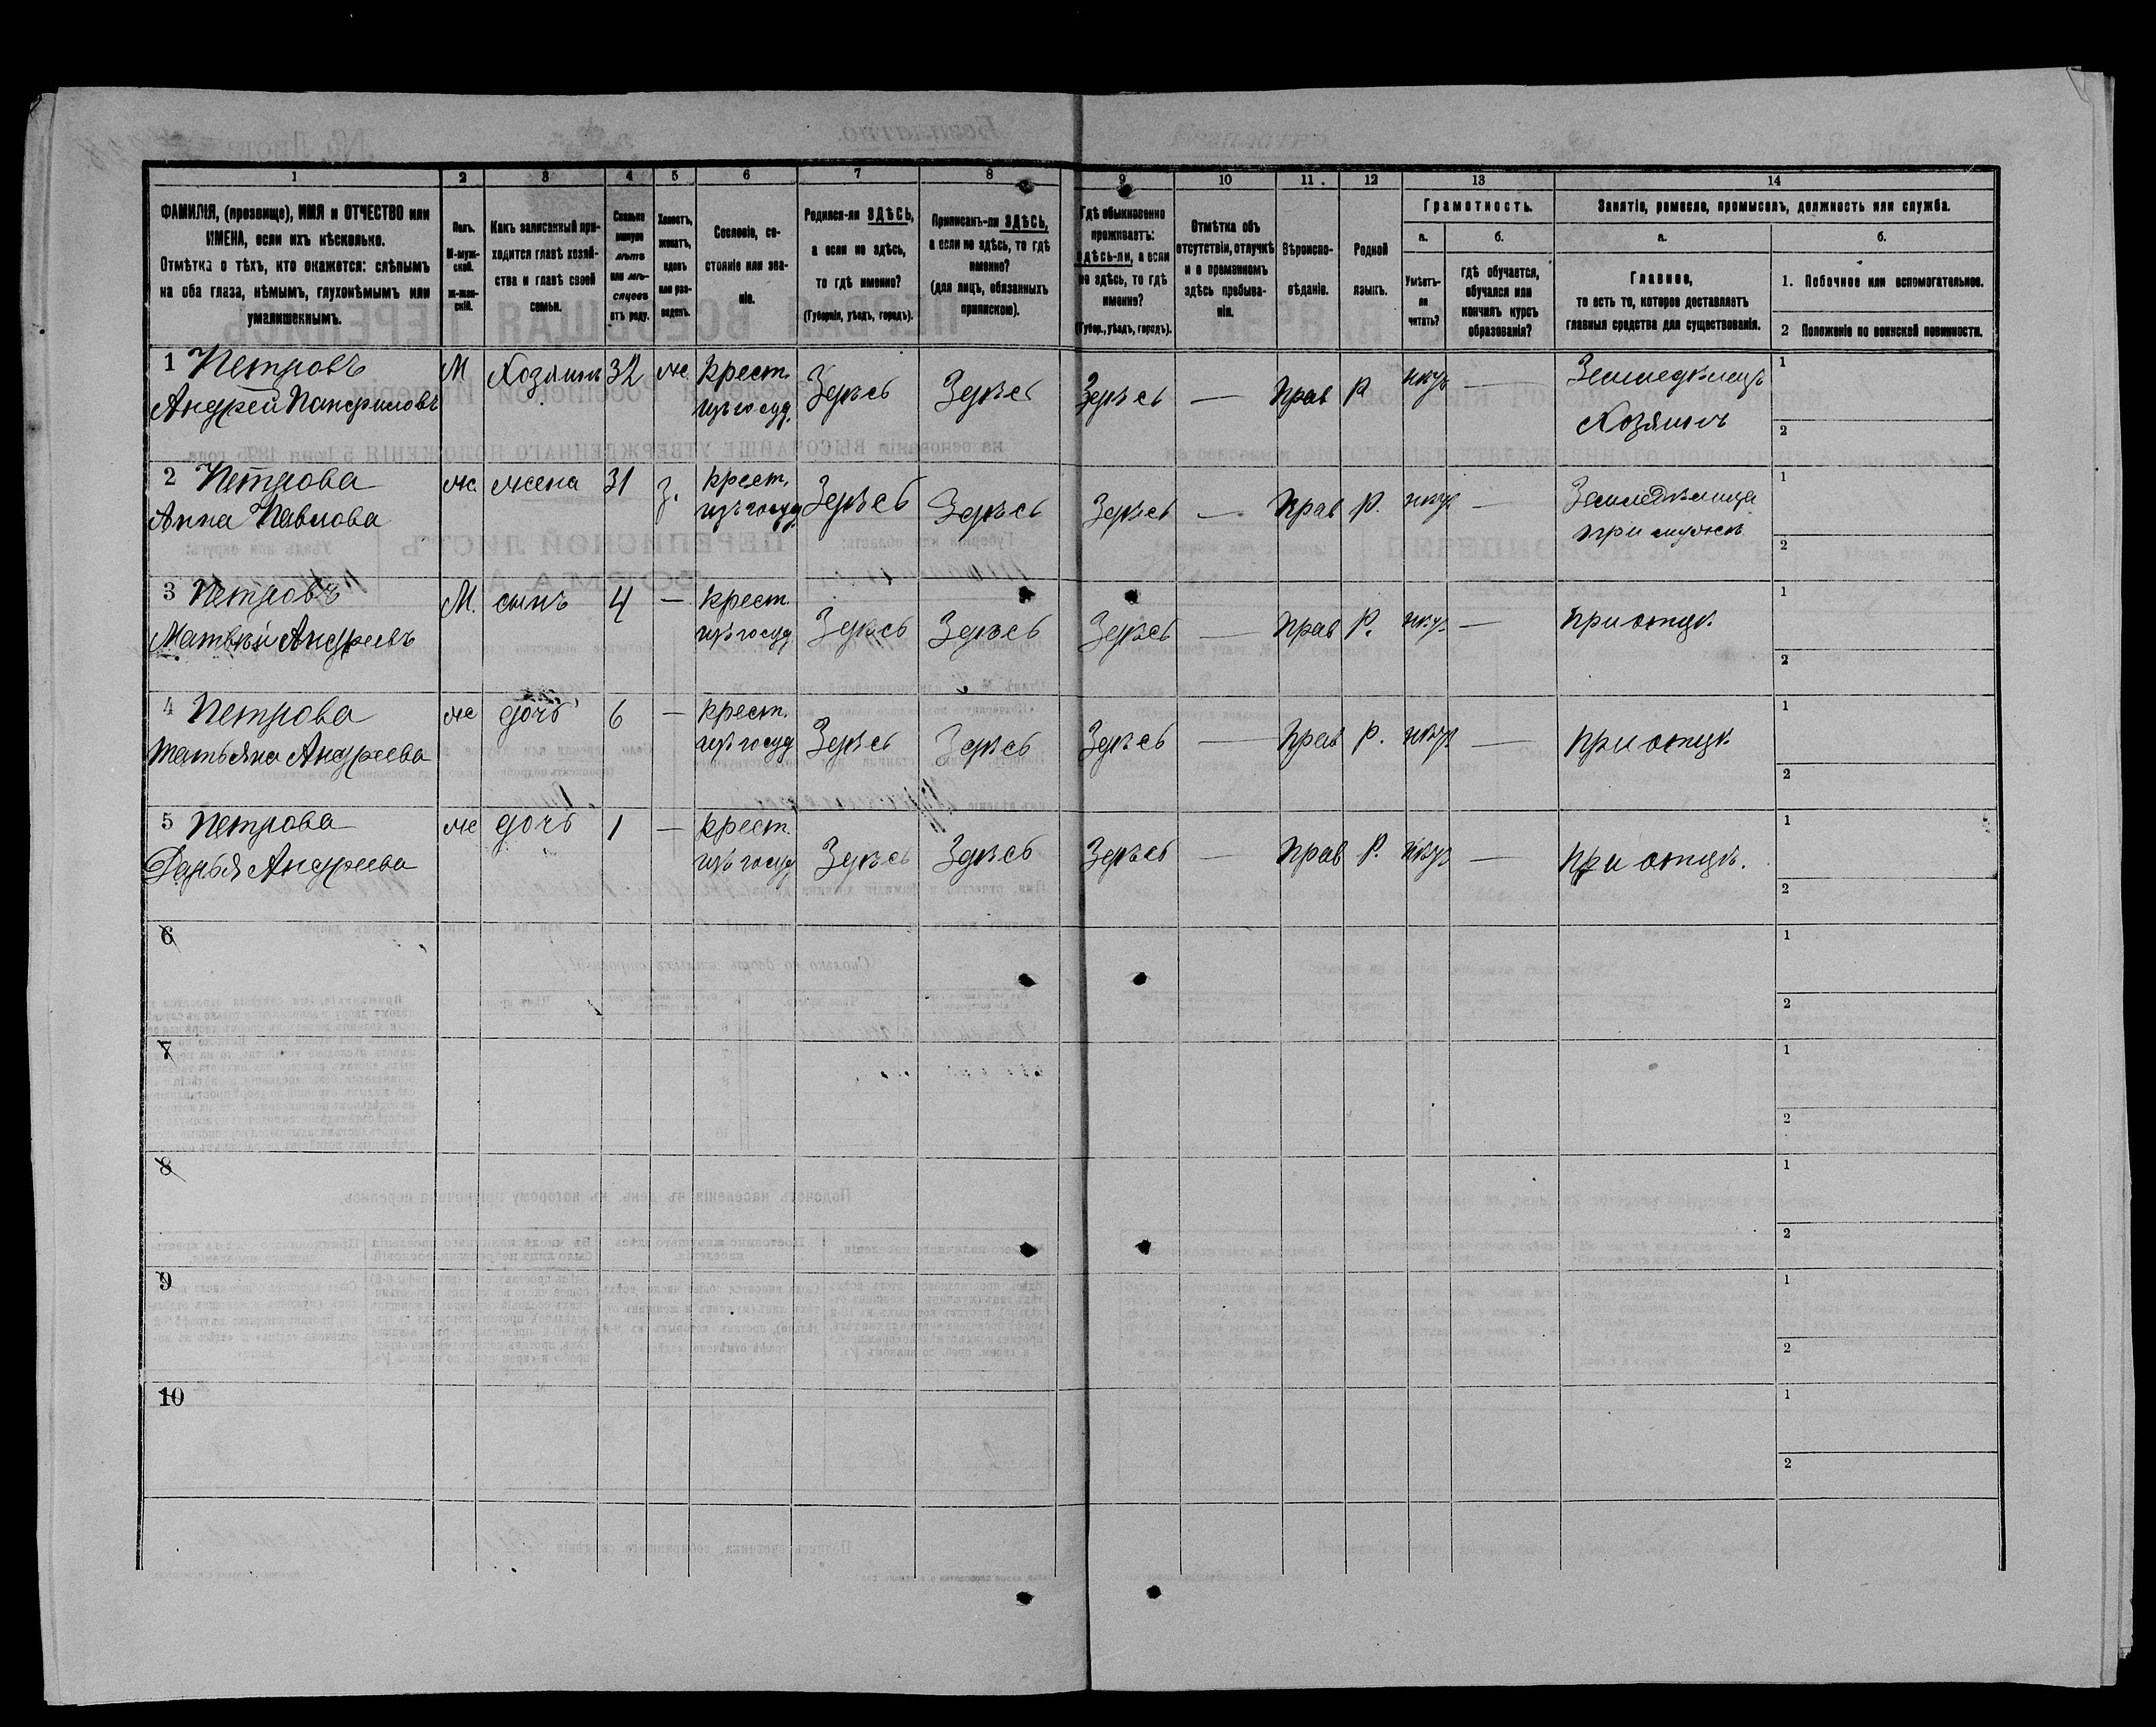 1 2 3 4 5 6 7 8 9 10 11 12 13 14
ФАМИЛІЯ, (прозвище), ИМЯ и ОТЧЕСТВО или
ИМЕНА, если ихъ нѣсколько.
Отмѣтка о тѣхъ, кто окажется: слѣпымъ
на оба глаза, нѣмымъ, глухонѣмымъ или
умалишеннымъ.
Полъ.
М-муж-
ской.
ж-жен-
скій.
Какъ записанный при-
ходится главѣ хозяй-
ства и главѣ своей
семьи.
Сколько
минуло
лѣтъ
или мѣ-
сяцевъ
отъ роду.
Холостъ,
женатъ,
вдовъ
или раз-
веденъ.
Сословіе, со-
стояніе или зва-
ніе.
Родился-ли ЗДѢСЬ,
а если не здѣсь,
то гдѣ именно?
(Губернія, уѣздъ, городъ).
Приписанъ-ли ЗДѢСЬ,
а если не здѣсь, то гдѣ
именно?
(для лицъ, обязанныхъ
припискою).
Гдѣ обыкновенно
проживаетъ:
здѣсь-ли, а если
не здѣсь, то гдѣ
именно?
(Губер., уѣздъ, городъ).
Отмѣтка объ
отсутствіи, отлучкѣ
и о временномъ
здѣсь пребыва-
ніи.
Вѣроиспо-
вѣданіе.
Родной
языкъ.
Грамотность.
а.
Умѣетъ-
ли
читать?
б.
гдѣ обучается,
обучался или
кончилъ курсъ
образованія?
Занятіе, ремесло, промыселъ, должность или служба.
а.
Главное,
то есть то, которое доставляетъ
главныя средства для существованія.
б.
1. Побочное или вспомогательное.
2 Положеніе по воинской повинности.
1 Петровъ М Хозяинъ 32 ж. Крест. Здѣсь Здѣсь Здѣсь — Прав Р — Земледѣлецъ 1
Андрей изъ госуд. Хозяинъ 2
2 Петрова ж. жена 31 з. Крест. Здѣсь Здѣсь Здѣсь — Прав Р. — Земледѣлица 1
Анна Павлова изъ госуд. при мужѣ 2
3 Петровъ М. сынъ 4 — Крест. Здѣсь Здѣсь Здѣсь — Прав Р. — при отцѣ. 1
Матвѣй Андреевъ изъ госуд 2
4 Петрова ж дочь 6 — Крест. Здѣсь Здѣсь Здѣсь — Прав Р. — при отцѣ. 1
Татьяна Андреева изъ госуд 2
5 Петрова ж дочь 1 — Крест. Здѣсь Здѣсь Здѣсь — Прав Р. — при отцѣ. 1
Дарья Андреева изъ госуд 2
6 1
2
7 1
2
8 1
2
9 1
2
10 1
2